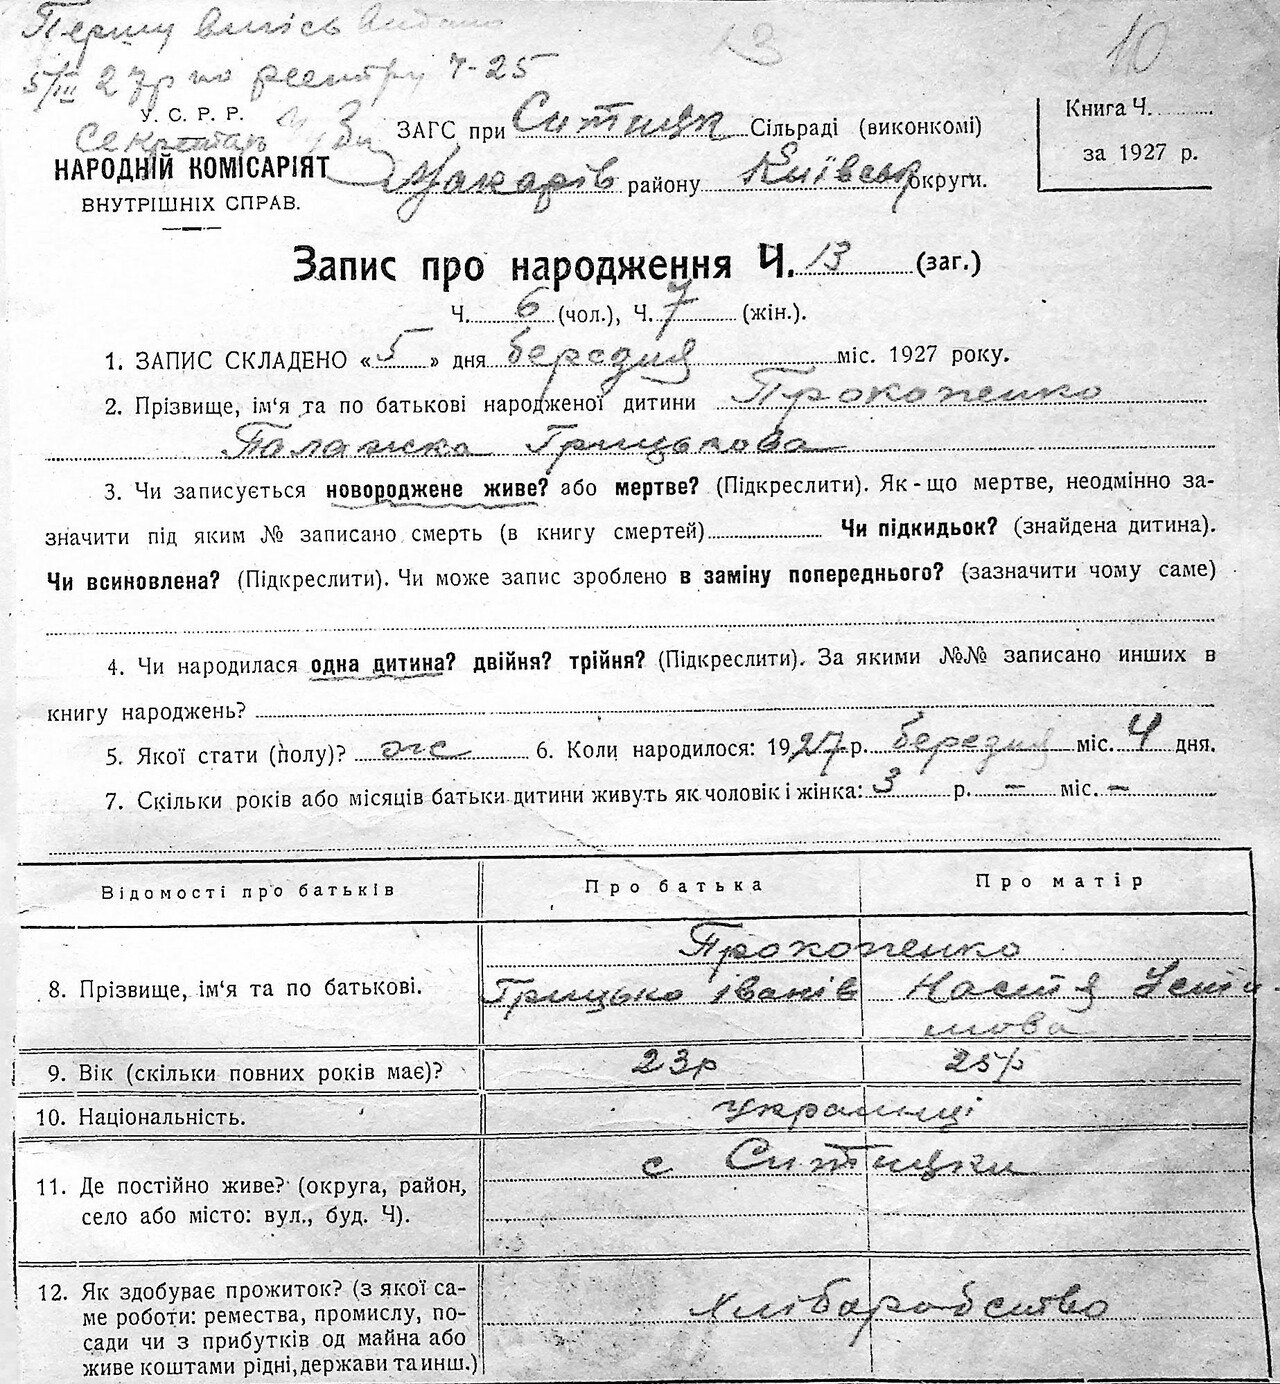 Першу випись видано
5/III 27р по реєстру Ч-25
У. С. Р. Р.
Секретар
НАРОДНІЙ КОМІСАРІЯТ
ВНУТРІШНІХ СПРАВ.
13
10
ЗАГС при Ситняцк Сільраді (виконкомі)
Макарів району Київськ округи.
Книга Ч.
за 1927 р.
Запис про народження Ч. 13 (заг.)
Ч. 6 (чол.), Ч. 7 (жін.).
1. ЗАПИС СКЛАДЕНО «5» дня березня міс. 1927 року.
2. Прізвище, ім'я та по батькові народженої дитини Прокопенко
Палажка Грицькова
3. Чи записується новороджене живе? або мертве? (Підкреслити). Як-що мертве, неодмінно за-
значити під яким № записано смерть (в книгу смертей) Чи підкидьок? (знайдена дитина).
Чи всиновлена? (Підкреслити). Чи може запис зроблено в заміну попереднього? (зазначити чому саме)
4. Чи народилася одна дитина? двійня? трійня? (Підкреслити). За якими №№ записано инших в
книгу народжень?
5. Якої стати (полу)? жс 6. Коли народилося: 1927 р. березня міс. 4 дня.
7. Скільки років або місяців батьки дитини живуть як чоловік і жінка: 3 р. — міс. —
Відомості про батьків Про батька Про матір
8. Прізвище, ім'я та по батькові. Прокопенко
Грицько Іванів Настя Усти-
мова
9. Вік (скільки повних років має)? 23р 25р
10. Національність. українці
11. Де постійно живе? (округа, район, с Ситняки
село або місто: вул., буд. Ч).
12. Як здобуває прожиток? (з якої са-
ме роботи: ремества, промислу, по- Хліборобство
сади чи з прибутків од майна або
живе коштами рідні, держави та инш.)